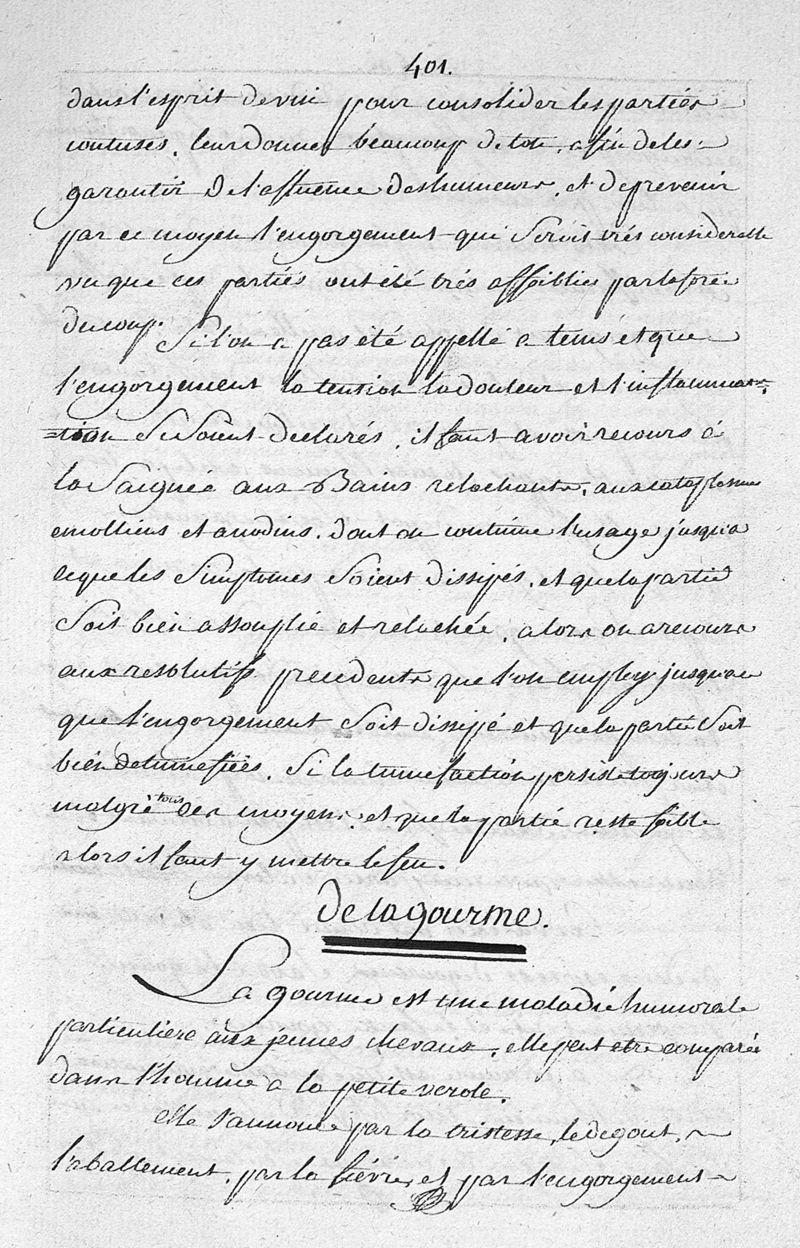 401.
dans l'esprit de vin pour consolider les parties
contuses, leur donner beaucoup de ton, afin de les
garantir de l'affluence des humeurs, et de prevenir
par ce moyen l'engorgement qui seroit trés considerable
vu que ces parties ont été trés affoiblies par la force
du coup.
Si l'on a pas été appellé a tems et que
l'engorgement la tension la douleur et l'inflamma=
=tion se soient declarés, il faut avoir recours à
la Saignée aux Bains relachants, aux cataplasmes
emolliens et anodins, dont on continue l'usage jusqu'a
ceque les Simptomes soient dissipés, et que la partie
soit bien assouplie et relachée, alors on a recours
aux resolutifs precedents que l'on employ jusqu'a ce
que l'engorgement soit dissipé et que la partie soit
bien detumefiée. Si la tumefaction persiste toujours
malgré tous ces moyens, et que la partie reste foible
alors il faut y mettre le feu.
de la gourme.
La gourme est une maladie humorale
particuliere aux jeunes chevaux, elle peut etre comparée
dans l'homme a la petite verole.
elle s'annonce par la tristesse, le degout,
l'abattement, par la fiévre, et par l'engorgement